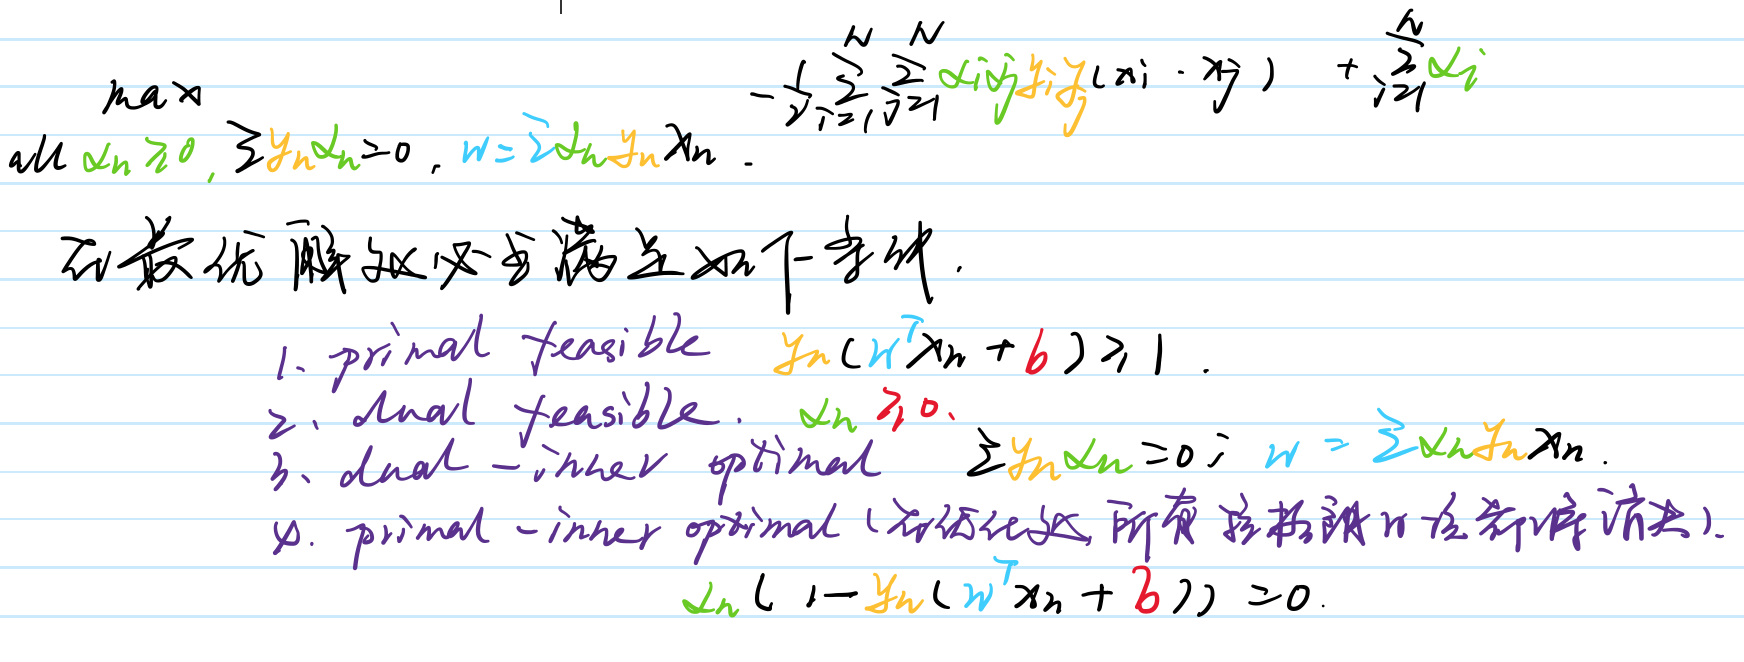 max
all αn ≥ 0, Σ yn αn = 0, w = Σ αn yn xn . - 1/2 Σ_{i=1}^{N} Σ_{j=1}^{N} αi αj yi yj (xi · xj) + Σ_{i=1}^{N} αi
在最优解处必定满足如下条件.
1. primal feasible yn (w^T xn + b) ≥ 1 .
2. dual feasible. αn ≥ 0.
3. dual - inner optimal Σ yn αn = 0 ; w = Σ αn yn xn .
4. primal - inner optimal (在优化处, 所有拉格朗日
αn ( 1 - yn (w^T xn + b )) = 0 .